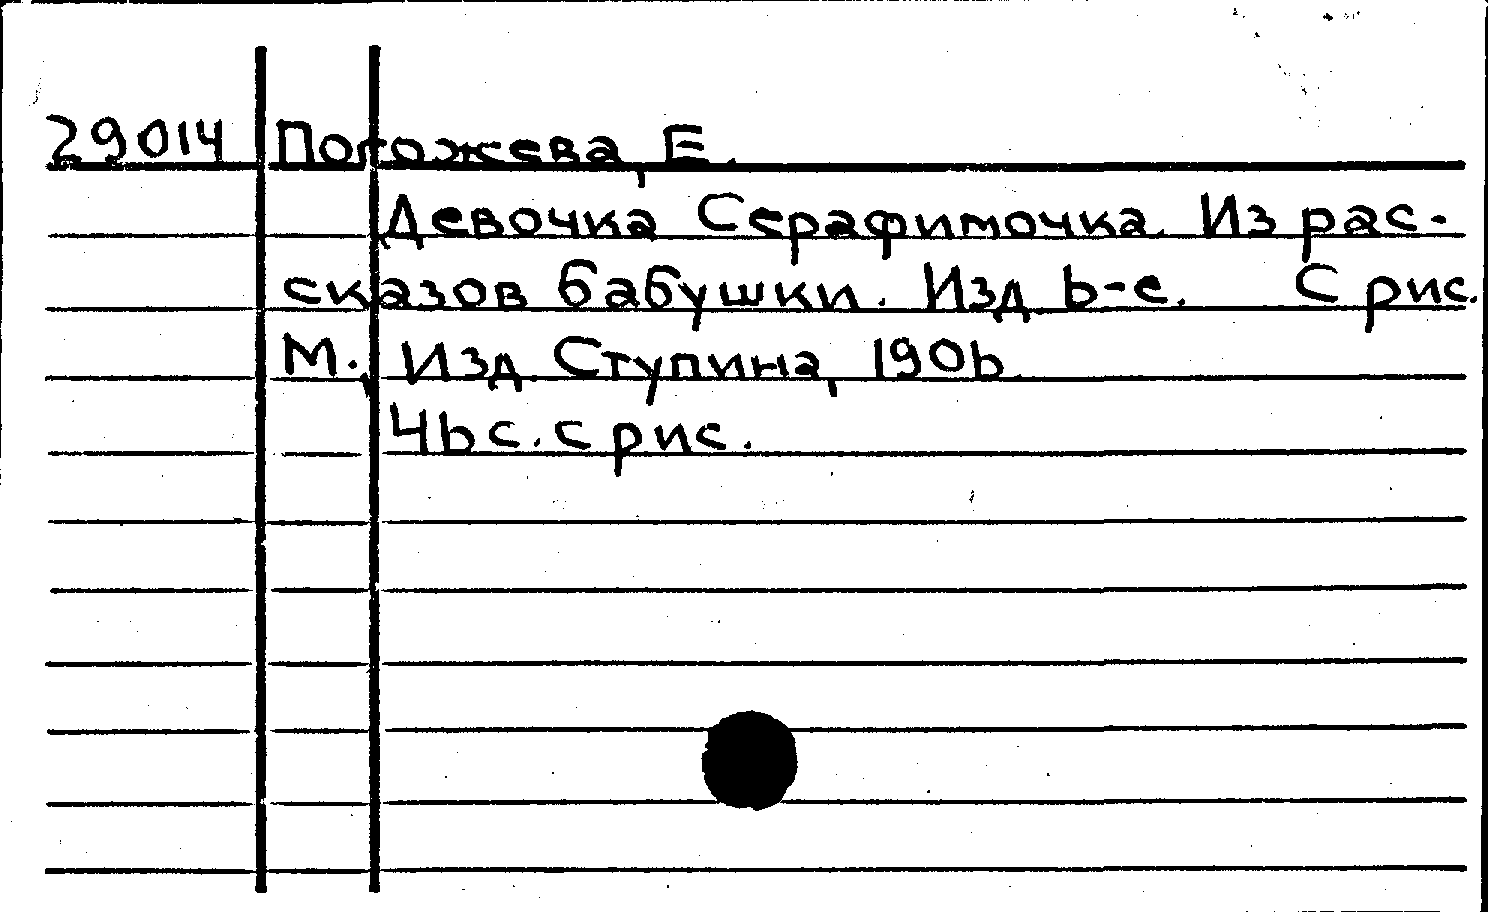 29014 Погожева, Е.
Девочка Серафимочка. Из рас-
сказов бабушки. Изд. 6-е. С рис.
М., Изд. Ступина, 1906.
46 с. с рис.